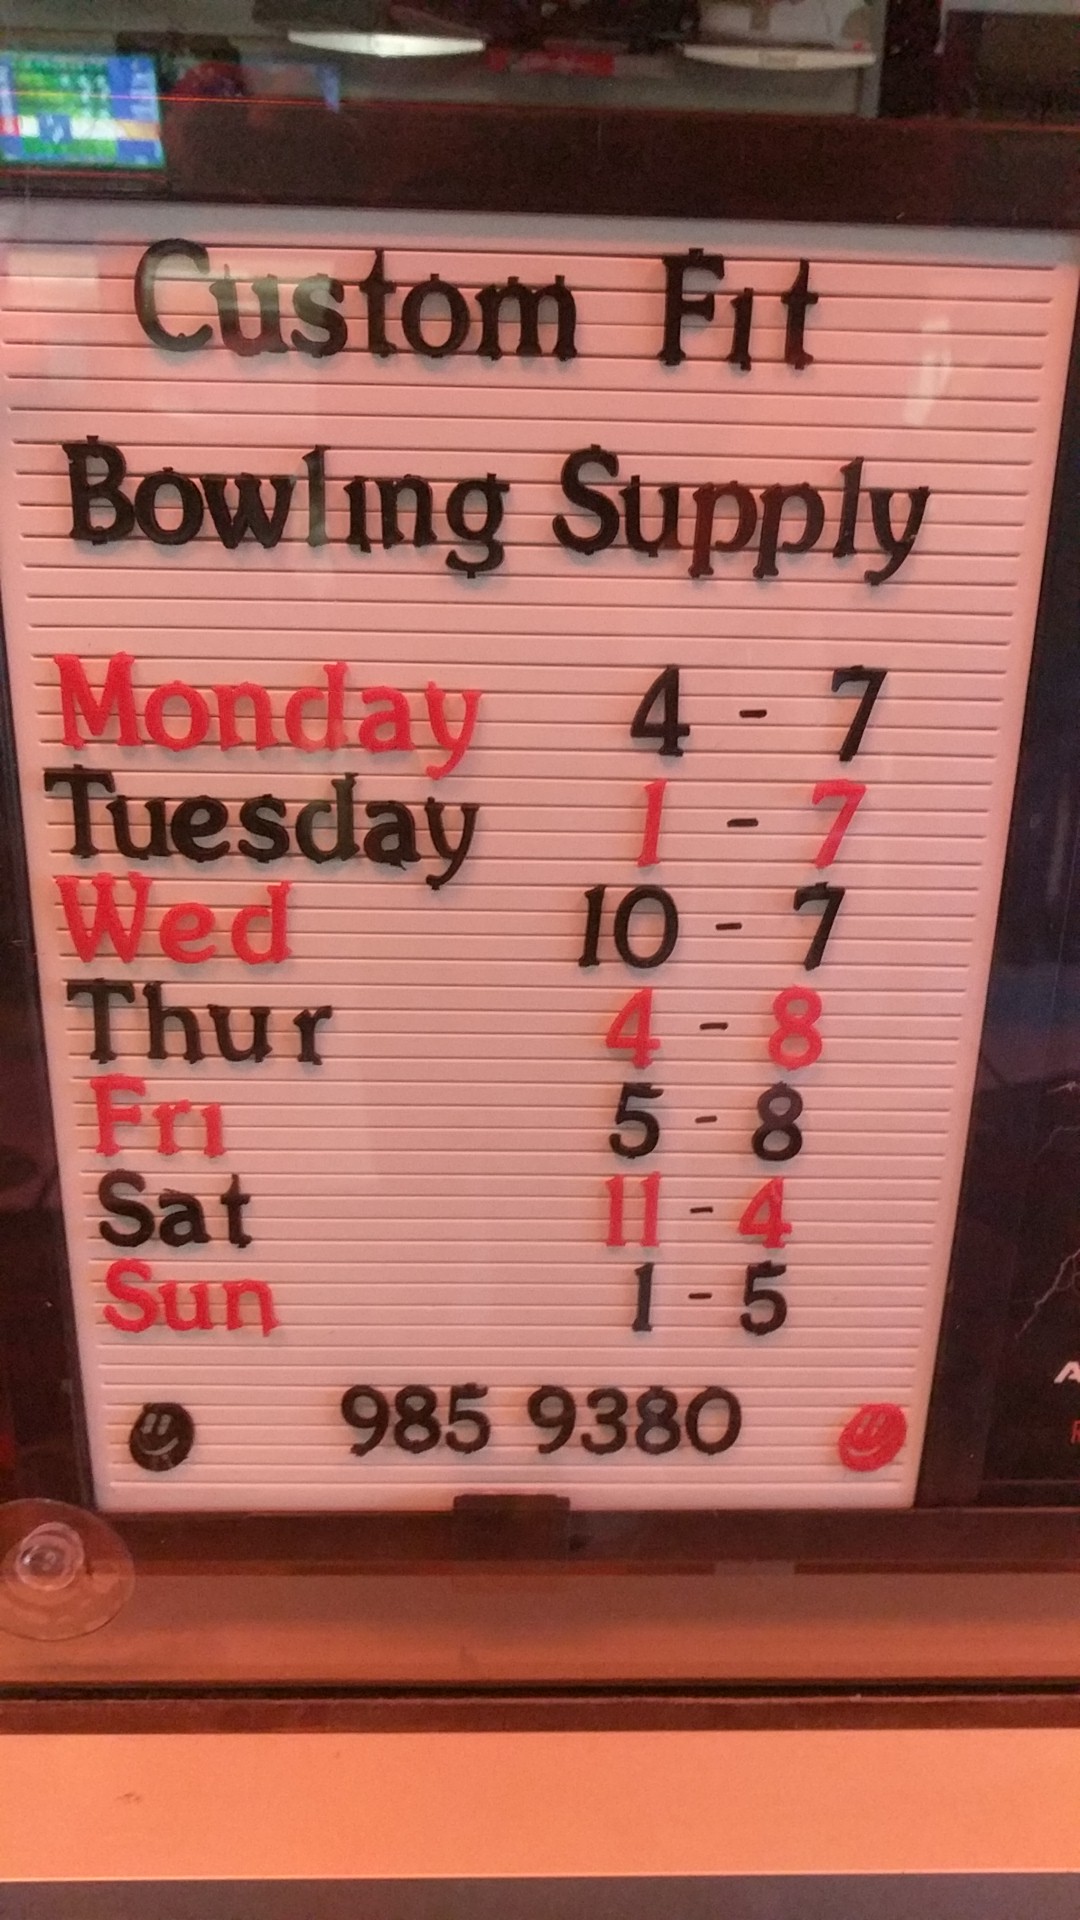 Custom Fit
Bowling Supply
Monday 4 - 7
Tuesday 1 - 7
Wed 10 - 7
Thur 4 - 8
Fri 5 - 8
Sat 11 - 4
Sun 1 - 5
985 9380